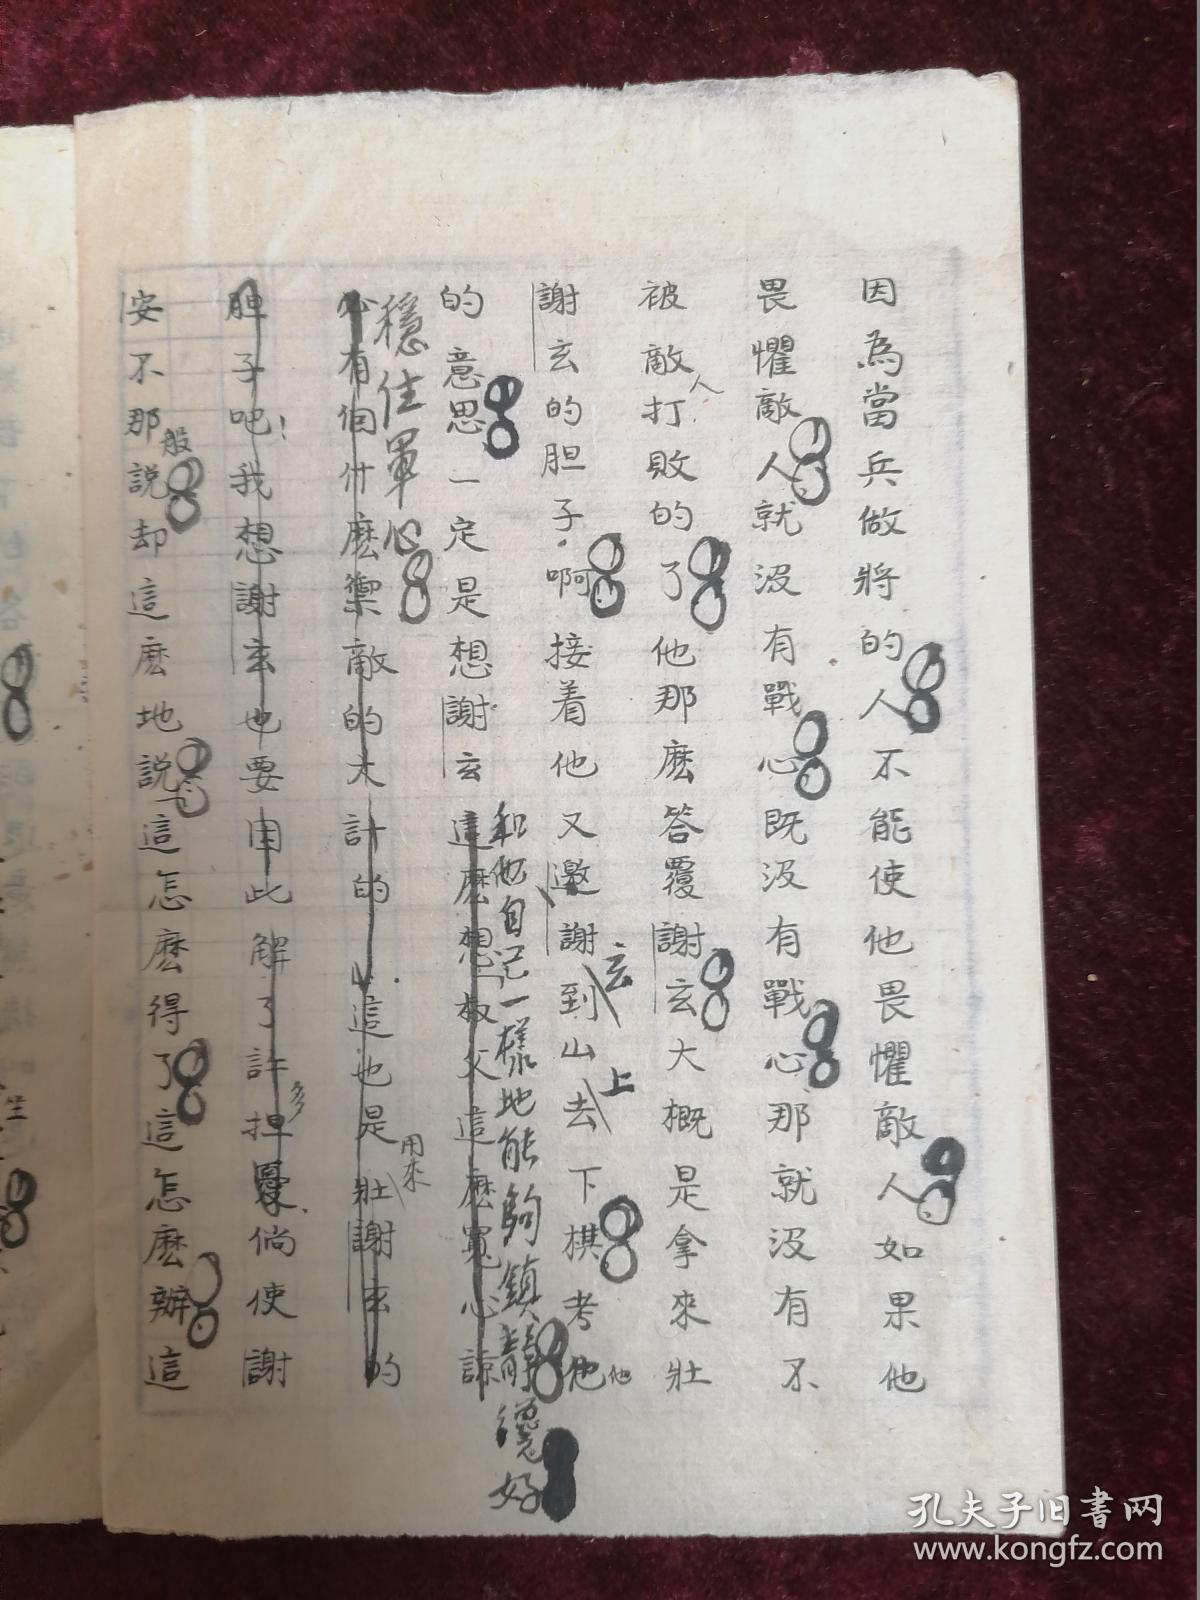 因為當兵做將的人不能使他畏懼敵人如果他
畏懼敵人就沒有戰心既沒有戰心那就沒有不
被敵人打敗的了他那麽答覆謝玄大概是拿來壯
謝玄的胆子啊接着他又邀謝玄到山上去下棋考他
他
的意思一定是想謝玄這麽想叔父這麽寬心諒
和他自己一樣地能夠鎮靜纔好
穩住軍心
必有個什麽禦敵的大計的這也是用來壯謝玄的
胆子吧!我想謝玄也要由此解了許多担憂倘使謝
安不那般說却這麽地說這怎麽得了這怎麽辦這
孔夫子旧書网
www.kongfz.com